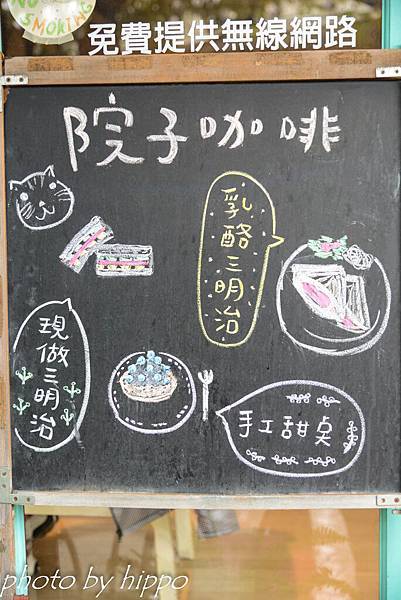 NO SMOKING
免費提供無線網路
院子咖啡
乳酪三明治
現做三明治
手工甜点
photo by hippo